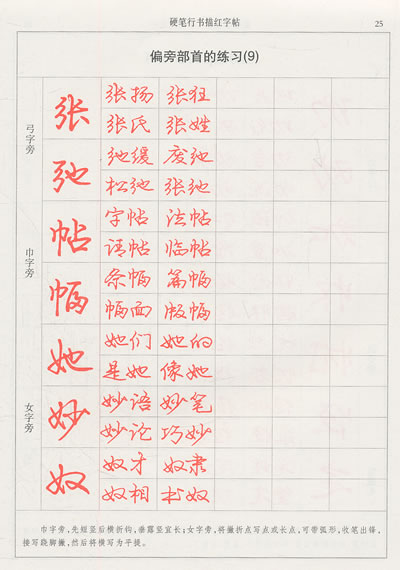 硬笔行书描红字帖 25
偏旁部首的练习(9)
弓字旁
张 张扬 张狂
张氏 张姓
弛 弛缓 废弛
松弛 张弛
巾字旁
帖 字帖 法帖
请帖 临帖
幅 条幅 篇幅
幅面 版幅
女字旁
她 她们 她的
是她 像她
妙 妙语 妙笔
妙论 巧妙
奴 奴才 奴隶
奴相 书奴
巾字旁,先短竖后横折钩,垂露竖宜长;女字旁,将撇折点写点或长点,可带弧形,收笔出锋,
接写跷脚撇,然后将横写为平提。